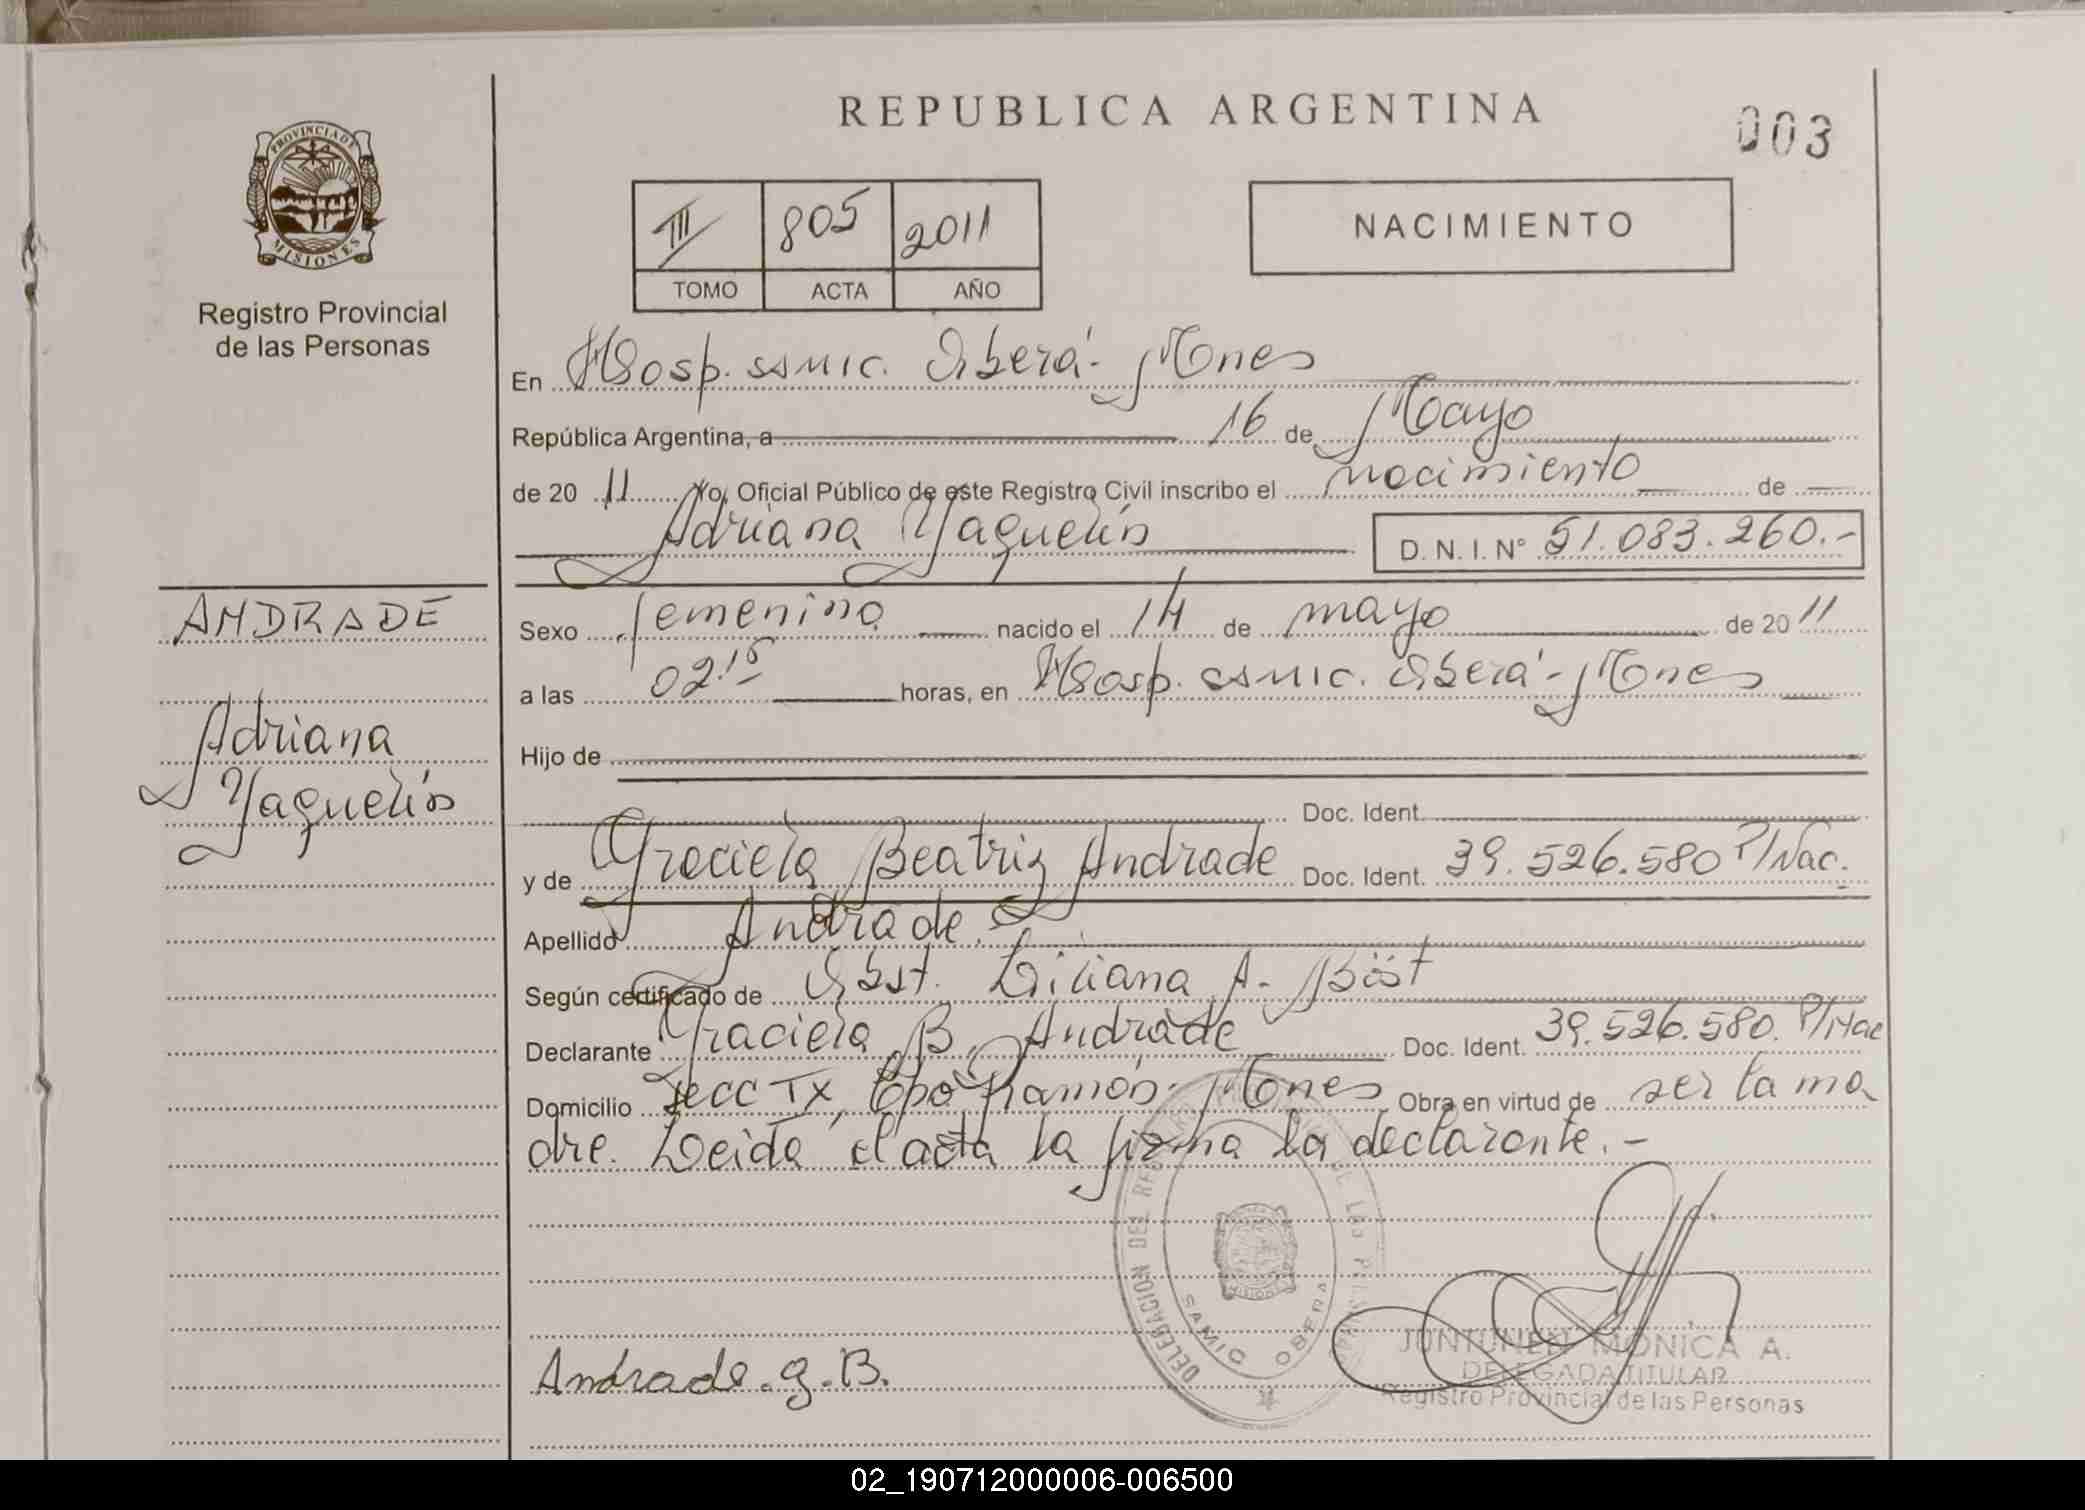 REPUBLICA ARGENTINA
003
PROVINCIA DE
MISIONES
Registro Provincial
de las Personas
III 805 2011
TOMO ACTA AÑO
NACIMIENTO
En Hosp. SAMIC. Oberá - Mnes
República Argentina, a 16 de Mayo
de 20 11 Yo, Oficial Público de este Registro Civil inscribo el nacimiento de
Adriana Yaquelin D. N. I. Nº 51.083.260.-
ANDRADE
Sexo femenino nacido el 14 de mayo de 20 11
a las 02.15 horas, en Hosp. SAMIC. Oberá - Mnes
Adriana
Yaquelin
Hijo de
Doc. Ident.
y de Graciela Beatriz Andrade Doc. Ident. 39.526.580 P/Nac.
Apellido Andrade.
Según certificado de Obst. Liliana A. Bist
Declarante Graciela B. Andrade Doc. Ident. 39.526.580. P/Nac
Domicilio Secc TX, Cpo Ramón - Mnes Obra en virtud de ser la ma
dre. Leida el acta la firma la declarante. -
DELEGACION DEL REGISTRO PROVINCIAL DE LAS PERSONAS
SAMIC OBERA
MISIONES
JUNTUNEN MONICA A.
DELEGADA TITULAR
Registro Provincial de las Personas
Andrade. g. B.
02_190712000006-006500